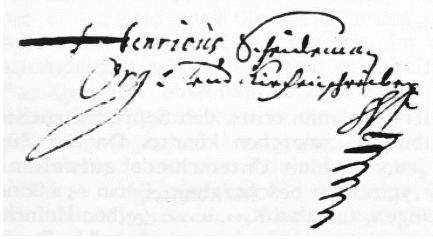 Henricus Scheideman
Org: und Kirchenschreiber